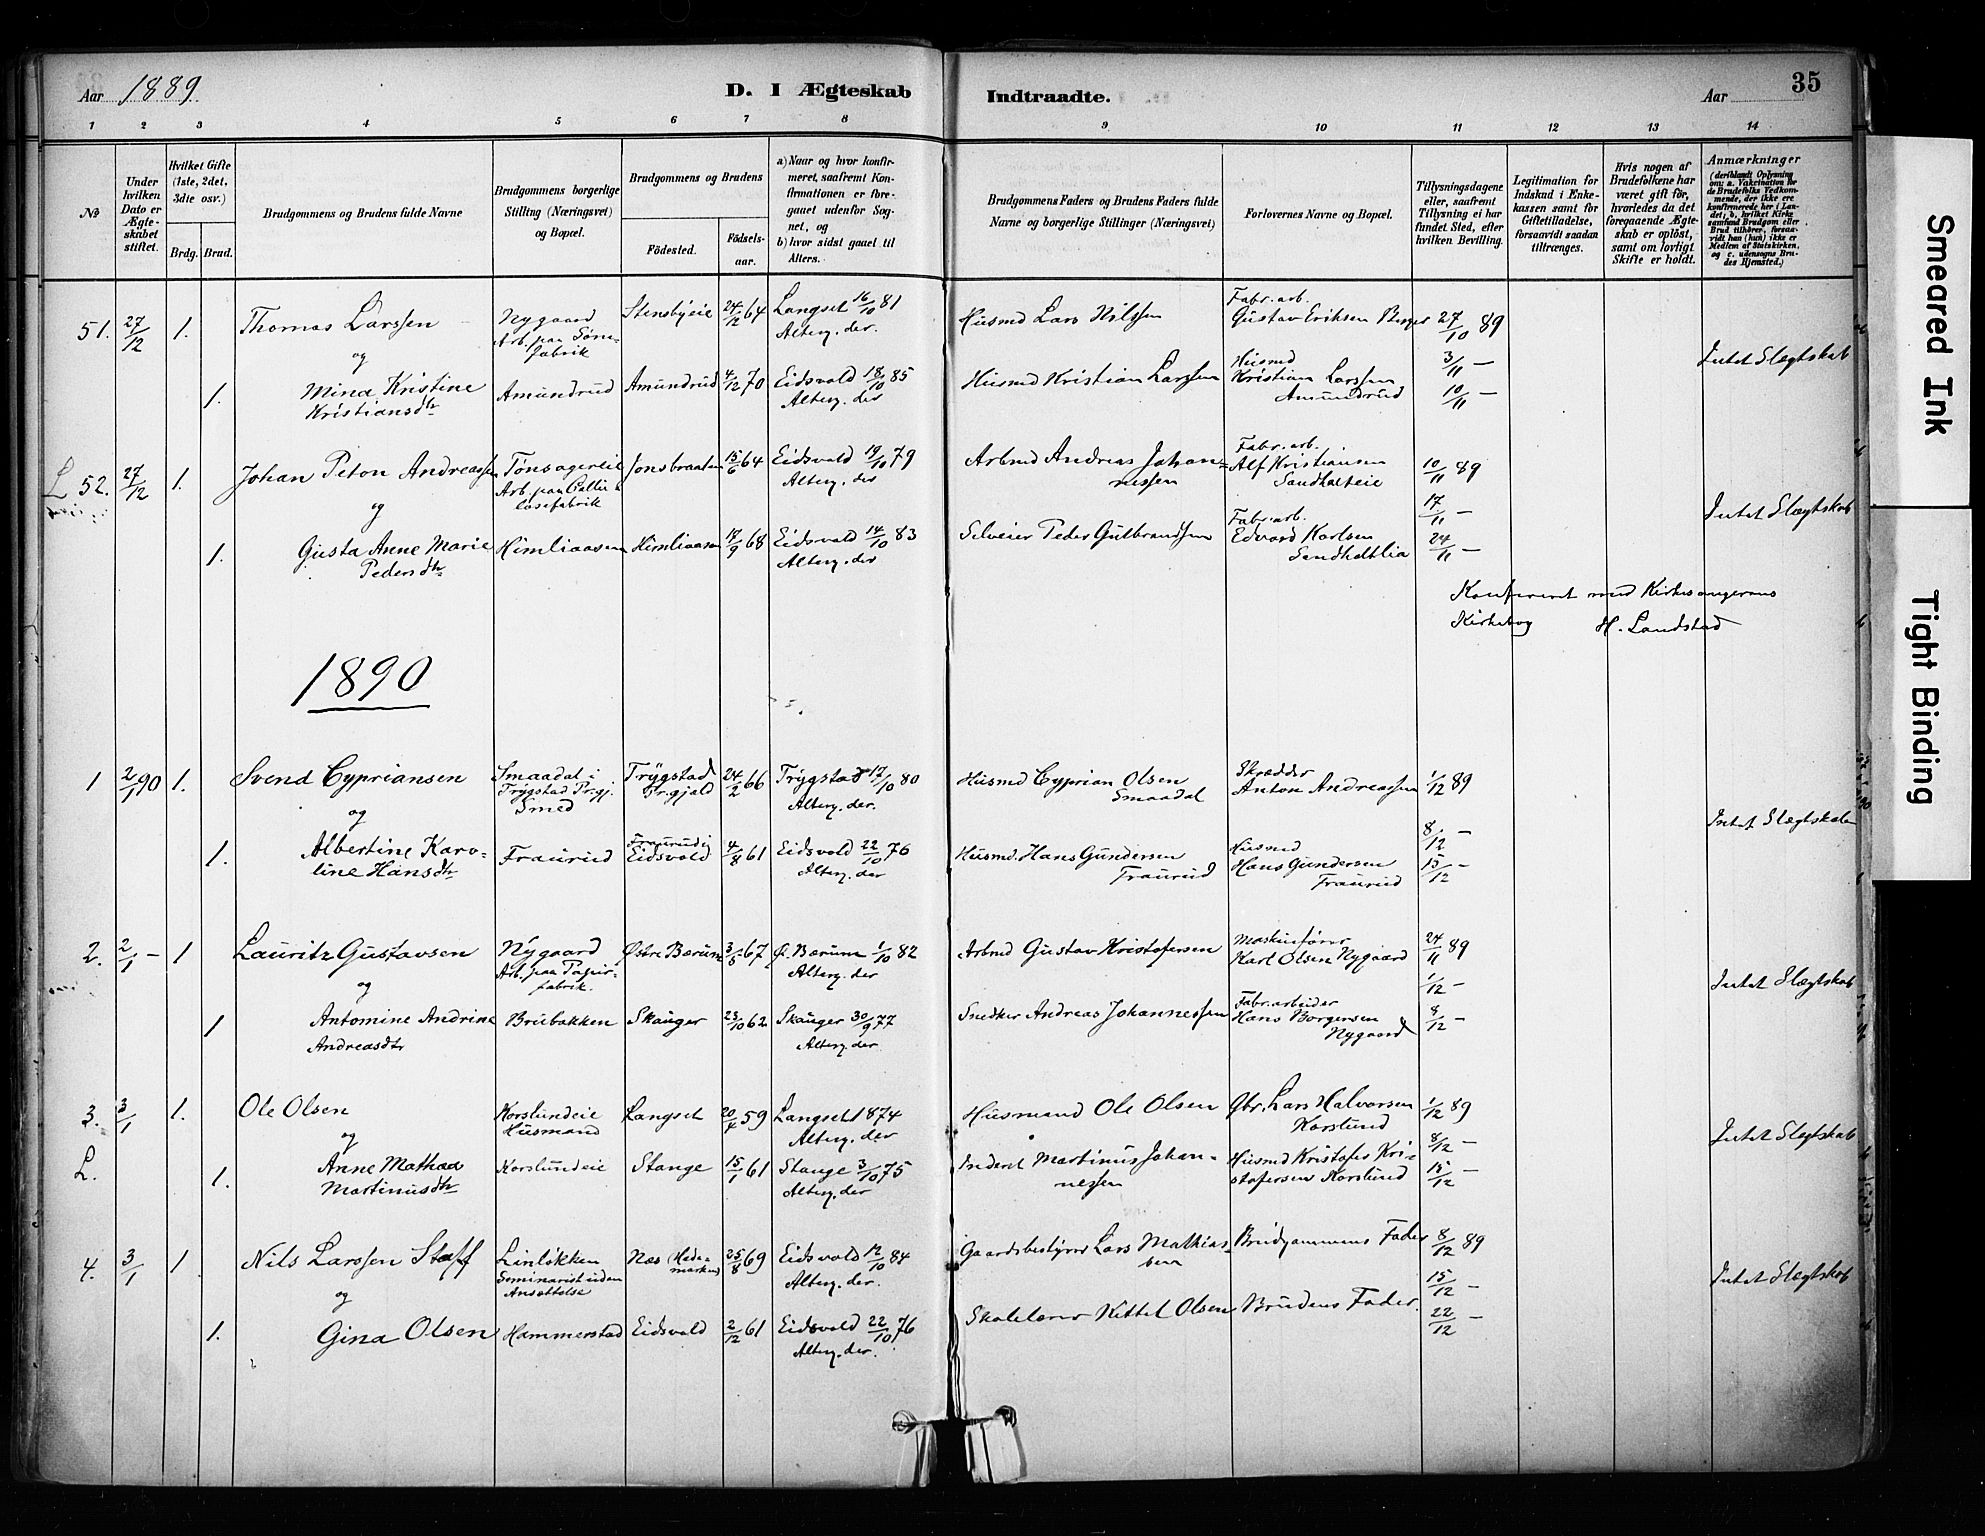 Aar 1889
D. I Ægteskab
Indtraadte.
Aar
35
1 2 3 4 5 6 7 8 9 10 11 12 13 14
№
Under hvilken Dato er Ægteskabet stiftet.
Hvilket Gifte (1ste, 2det, 3die osv.)
Brdg. Brud.
Brudgommens og Brudens fulde Navne
Brudgommens borgerlige Stilling (Næringsvei) og Bopæl.
Brudgommens og Brudens
Födested.
Födsels-aar.
a) Naar og hvor konfirmeret, saafremt Konfirmationen er foregaaet udenfor Sognet, og
b) hvor sidst gaaet til Alters.
Brudgommens Faders og Brudens Faders fulde Navne og borgerlige Stillinger (Næringsvei)
Forlovernes Navne og Bopæl.
Tillysningsdagene eller, saafremt Tillysning ei har fundet Sted, efter hvilken Bevilling.
Legitimation for Indskud i Enkekassen samt for Giftetilladelse, forsaavidt saadan tiltrænges.
Hvis nogen af Brudefolkene har været gift før, hvorledes da det foregaaende Ægteskab er oplöst, samt om lovligt Skifte er holdt.
Anmærkninger (deriblandt Oplysning om: a. Vakcination for de Brudefolks Vedkommende, der ikke ere konfirmerede her i Landet; b. hvilket Kirkesamfund Brudgom eller Brud tilhører, forsaavidt han (hun) ikke er Medlem af Statskirken, og c. udensogns Brudes Hjemsted.)
51. 27/12 1. Thomas Larssen Nygaard Stensbyeie 24/12 64 Langset 16/10 81 Husmd Lars Nilssen Fabr. arb. Gustav Eriksen Berger 27/10 89
Arb. paa Tøndefabrik Alterg. der.
og 3/11 – Intet Slægtskab
1. Mina Kristine Amundrud Amundrud 4/12 70 Eidsvold 18/10 85 Husmd Kristian Larssen Husmd Kristian Larssen
Kristiansdtr Alterg. der Amundrud 10/11 –
L 52. 27/12 1. Johan Peton Andreassen Tønsagereie Jonsbraaten 15/6 64 Eidsvold 19/10 79 Arbmd Andreas Johannessen Fabr. arb. Alf Kristiansen 10/11 89
Alterg. der Sandholteie
og 17/11 – Intet Slægtskab
1. Gusta Anne Marie Himliaasen Himliaasen 17/9 68 Eidsvold 14/10 83 Selveier Peder Gulbrandssen Fabr. arb. Edvard Karlsen 24/11 –
Pedersdtr Alterg. der Sandholtlia
Konfereret med Kirkesangerens
Kirkebog H. Landstad
1890
1 2/1 90 1. Svend Cypriansen Smaadal i Trygstad 24/2 66 Trygstad 17/10 80 Husmd Cyprian Olsen Skrædder Anton Andreassen 1/12 89
Trygstad Pr.gj. Pr.gjeld Alterg. der. Smaadal
Smed
og 8/12 – Intet Slægtskab
1. Albertine Karoline Hansdtr Fraurud Fraurud i Eidsvold 4/8 61 Eidsvold 22/10 76 Husmd. Hans Gundersen Husmd Hans Gundersen 15/12 –
Alterg. der Fraurud Fraurud
2. 2/1 – 1 Lauritz Gustavsen Nygaard Østre Bærum 3/5 67 Ø. Bærum 1/10 82 Arbmd Gustav Kristofersen Maskinfører Karl Olsen Nygaard 24/11 89
Arb. paa Papirfabrik. Alterg. der
og 1/12 – Intet Slægtskab
1 Antomine Andrine Brubakken Skauger 23/10 62 Skauger 30/9 77 Snedker Andreas Johannessen Fabr. arbeider Hans Borgersen 8/12 –
Andreasdtr Alterg. der Nygaard
3. 3/1 1. Ole Olsen Korslundeie Langset 20/4 59 Langset 1874 Husmand Ole Olsen Gbr. Lars Halvorsen 1/12 89
Husmand Alterg. der Korslund
og 8/12 – Intet Slægtskab
L. 1. Anne Mathea Korslundeie Stange 15/1 61 Stange 3/10 75 Inderst Martinus Johannessen Husmd Kristofer Kristofersen Korslund 15/12 –
Martinusdtr Alterg. der
4. 3/1 1 Nils Larssen Staff Linløkken Næs (Hedemarken) 25/8 69 Eidsvold 12/10 84 Gaardsbestyrer Lars Mathiassen Brudgommens Fader 8/12 89
Seminarist uden Ansættelse Alterg. der.
og 15/12 – Intet Slægtskab
1. Gina Olsen Hammerstad Eidsvold 2/12 61 Eidsvold 22/10 76 Skolelærer Kittel Olsen Brudens Fader. 22/12 –
Alterg. der.
Smeared Ink
Tight Binding